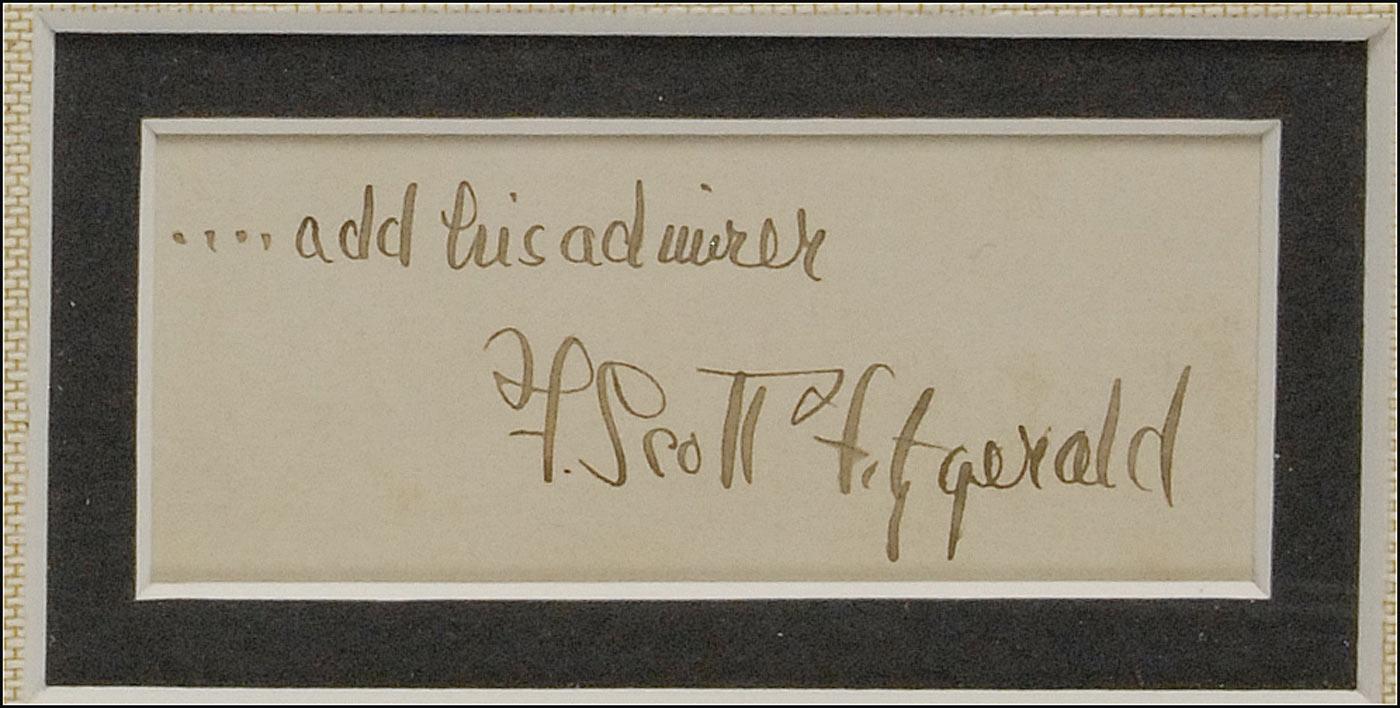 .... add his admirer
F. Scott Fitzgerald